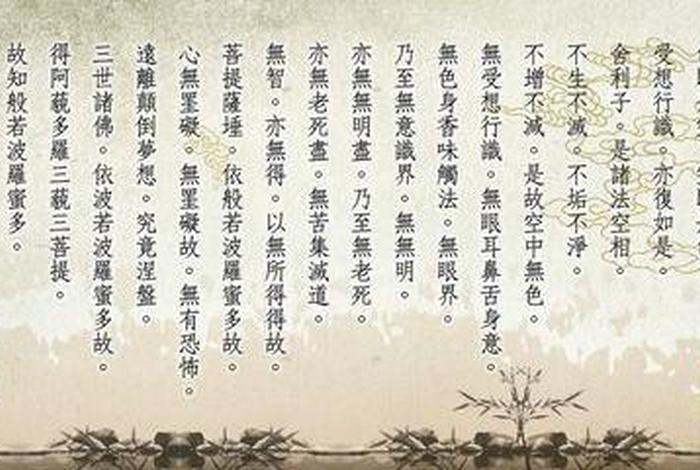 受想行識。亦復如是。
舍利子。是諸法空相。
不生不滅。不垢不淨。
不增不減。是故空中無色。
無受想行識。無眼耳鼻舌身意。
無色身香味觸法。無眼界。
乃至無意識界。無無明。
亦無無明盡。乃至無老死。
亦無老死盡。無苦集滅道。
無智。亦無得。以無所得得故。
菩提薩埵。依般若波羅蜜多故。
心無罣礙。無罣礙故。無有恐怖。
遠離顛倒夢想。究竟涅盤。
三世諸佛。依波若波羅蜜多故。
得阿藐多羅三藐三菩提。
故知般若波羅蜜多。